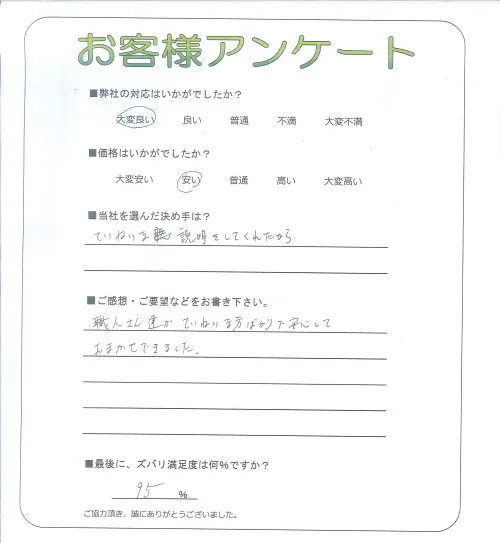 お客様アンケート
■弊社の対応はいかがでしたか？
大変良い 良い 普通 不満 大変不満
■価格はいかがでしたか？
大変安い 安い 普通 高い 大変高い
■当社を選んだ決め手は？
ていねいな 説明をしてくれたから
■ご感想・ご要望などをお書き下さい。
職人さん達がていねいな方ばかりで安心して
おまかせできました。
■最後に、ズバリ満足度は何％ですか？
95 %
ご協力頂き、誠にありがとうございました。